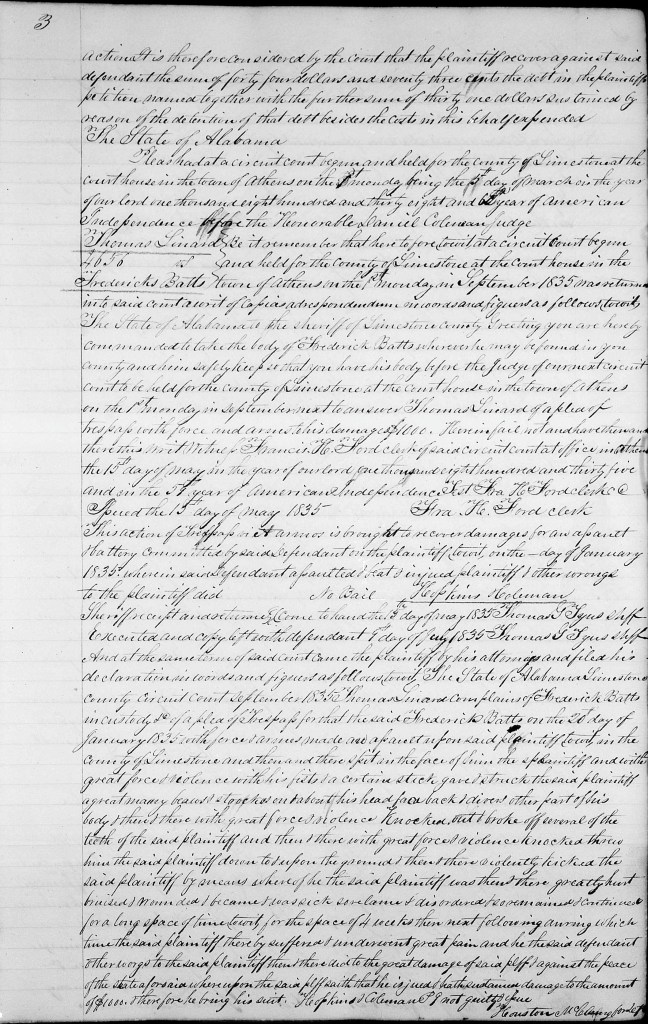 3
action It is therefore considered by the court that the plaintiff recover against said
defendant the sum of forty four dollars and seventy three cents the debt in the plaintiffs
petition named together with the further sum of thirty one dollars sustained by
reason of the detention of that debt besides the costs in this behalf expended
The State of Alabama
Pleas had at a circuit court begun and held for the county of Limestone at the
court house in the town of Athens on the 1st monday being the 5th day of March in the year
of our lord one thousand eight hundred and thirty eight and 62th year of American
Independence before the Honorable Daniel Coleman judge
Thomas Linard Be it remember that heretofore towit at a circuit court begun
4656 vs and held for the County of Limestone at the Court house in the
Fredericks Batts town of Athens on the 1st monday in September 1835 was return
into said court a writ of Capias adrespondendum in words and figuers as follows, towity
The State of Alabama to the sheriff of Limestone county Greeting you are hereby
commanded to take the body of Frederick Batts wherever he may be found in you
county and him safely keep so that you have his body before the Judge of our next circuit
court to be held for the county of Limestone at the Court house in the town of Athens
on the 1st monday in September next to answer Thomas Linard of a plea of
trespass with force and arms to his damages $1000. Herein fail not and have then and
there this writ Witness Francis. H. Ford clerk of said circuit court at office
the 15th day of may in the year of our lord one thousand eight hundred and thirty five
and in the 59th year of American Independence Test Fra H. Ford clerk CC
Issued the 15th day of may 1835 Fra. H. Ford clerk
This action of Trespass vi et armos is brought to recover damages for an assault
& battery committed by said Defendant on the plaintiff, towit, on the - day of January
1835. wherein said Defendant assaulted & beat & injued plaintiff & other wrongs
to the plaintiff did No Bail Hopkins & Coleman
Sheriff receipt and return Come to hand the day of may 1835 Thomas S Tyus shff
Executed and copy left with defendant day of July 1835 Thomas S Tyus shff
And at the same term of said Court came the plaintiff by his attorney and filed his
declaration in words and figuers as follows, towit, The State of Alabama Limestone
county Circuit Court September 1835 Thomas Linard Complains of Frederick Batts
in custody &c of a plea of Trespass for that the said Frederick Batts on the 20 day of
January 1835 with force & armes made an assault upon said plaintiff towit, in the
County of Limestone and then and there spit in the face of him the sd plaintiff and with
great force & violence with his fists & a certain stick gave & struck the said plaintiff
a great maney blows & strockes on & about his head face back & divers other part of his
body & then & there with great force & violence knocked, out & broke off several of the
teeth of the said plaintiff and then & there with great force & violence knocked threw
him the said plaintiff down to & upon the ground & then & there violently kicked the
said plaintiff by means where of he the said plaintiff was then & there greatly hurt
bruised & wounded & became & was sick sore lame & disordered & so remained & continued
for a long space of time, towit, for the space of 4 weeks then next following during which
time the said plaintiff there by suffered & underwent great pain and he the said defendant
& other worgs to the said plaintiff then & there did to the great damage of said plff & against the peace
of the state aforsaid where upon the said plff saith that he is jued & hath sustained damage to the amount
of $1000. & therefore he bring his suit. Hopkins & Coleman P. Q not guilty & Issue
Houston McClung for deft